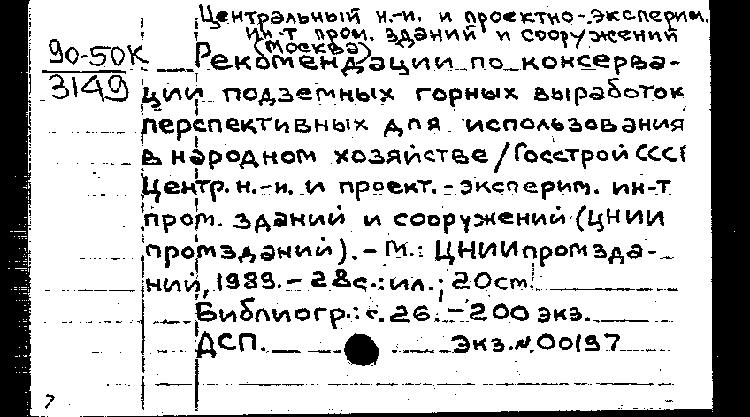 Центральный н.-и. и проектно-эксперим.
ин-т пром. зданий и сооружений
(Москва)
90-50К
3149
Рекомендации по консерва-
ции подземных горных выработок
перспективных для использования
в народном хозяйстве / Госстрой СССР
Центр. н.-и. и проект.-эксперим. ин-т
пром. зданий и сооружений (ЦНИИ
промзданий). - М.: ЦНИИпромзда-
ний, 1989. - 28с.: ил.; 20см
Библиогр.: с. 26. - 200 экз.
ДСП. Экз. N 00197
7